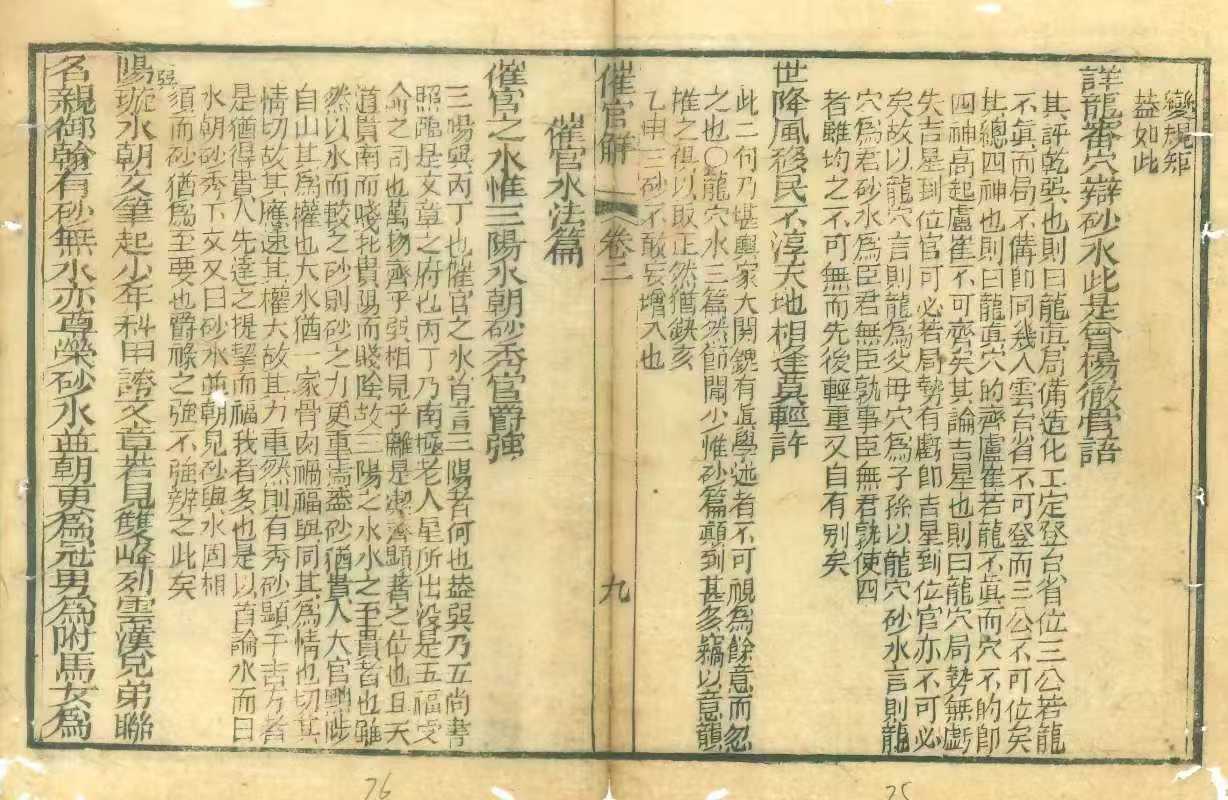 變規矩
葢如此
詳龍審穴辯砂水此是曾楊徹骨語
其評乾巽也則曰龍眞局備造化工定登台省位三公若龍
不眞而局不備即同幾人雲台省不可登而三公不可位矣
其總四神也則曰龍眞穴的齊盧崔若龍不眞而穴不的即
四神高起盧崔不可齊矣其論吉星也則曰龍穴局勢無虧
失吉星到位官可必若局勢有虧即吉星到位官亦不可必
矣故以龍穴言則龍爲父毋穴爲子孫以龍穴砂水言則龍
穴爲君砂水爲臣君無臣孰事臣無君孰使四
者雖均之不可無而先後輕重又自有别矣
世降風移民不淳天地相逢莫輕許
此二句乃堪輿家大関鍵有眞學述者不可視爲餘意而忽
之也〇龍穴水三篇然節聞少惟砂篇顛到甚多竊以意韻
推之俱以取正然猶缺亥
乙申三砂不敢妄增入也
催官解
卷二
九
催官水法篇
催官之水惟三陽水朝砂秀官爵強
三陽巽丙丁也催官之水首言三陽者何也葢巽乃五尚書
照臨是文章之府也丙丁乃南極老人星所出没是五福受
命之司也萬物齊乎巽相見乎離是潔齊顯著之佔也且天
道貴南而賤北貴陽而賤陰故三陽之水水之至貴者也雖
然以水而較之砂則砂之力更重焉葢砂猶貴人大官興陛
自山其爲權也大水猶一家骨肉禍福與同其爲情也切其
情切故其應速其權大故其力重然則有秀砂顯于吉方者
是猶得貴人先達之提挈而福我者多也是以首論水而曰
水朝砂秀下文又曰砂水並朝見砂與水固相
須而砂猶爲至要也爵祿之強不強辨之此矣
陽璇巽水朝文筆起少年科甲誇文章若見雙峰列雲漢兄弟聯
名親御翰有砂無水亦尊榮砂水並朝更爲冠男爲附馬女爲
76
25